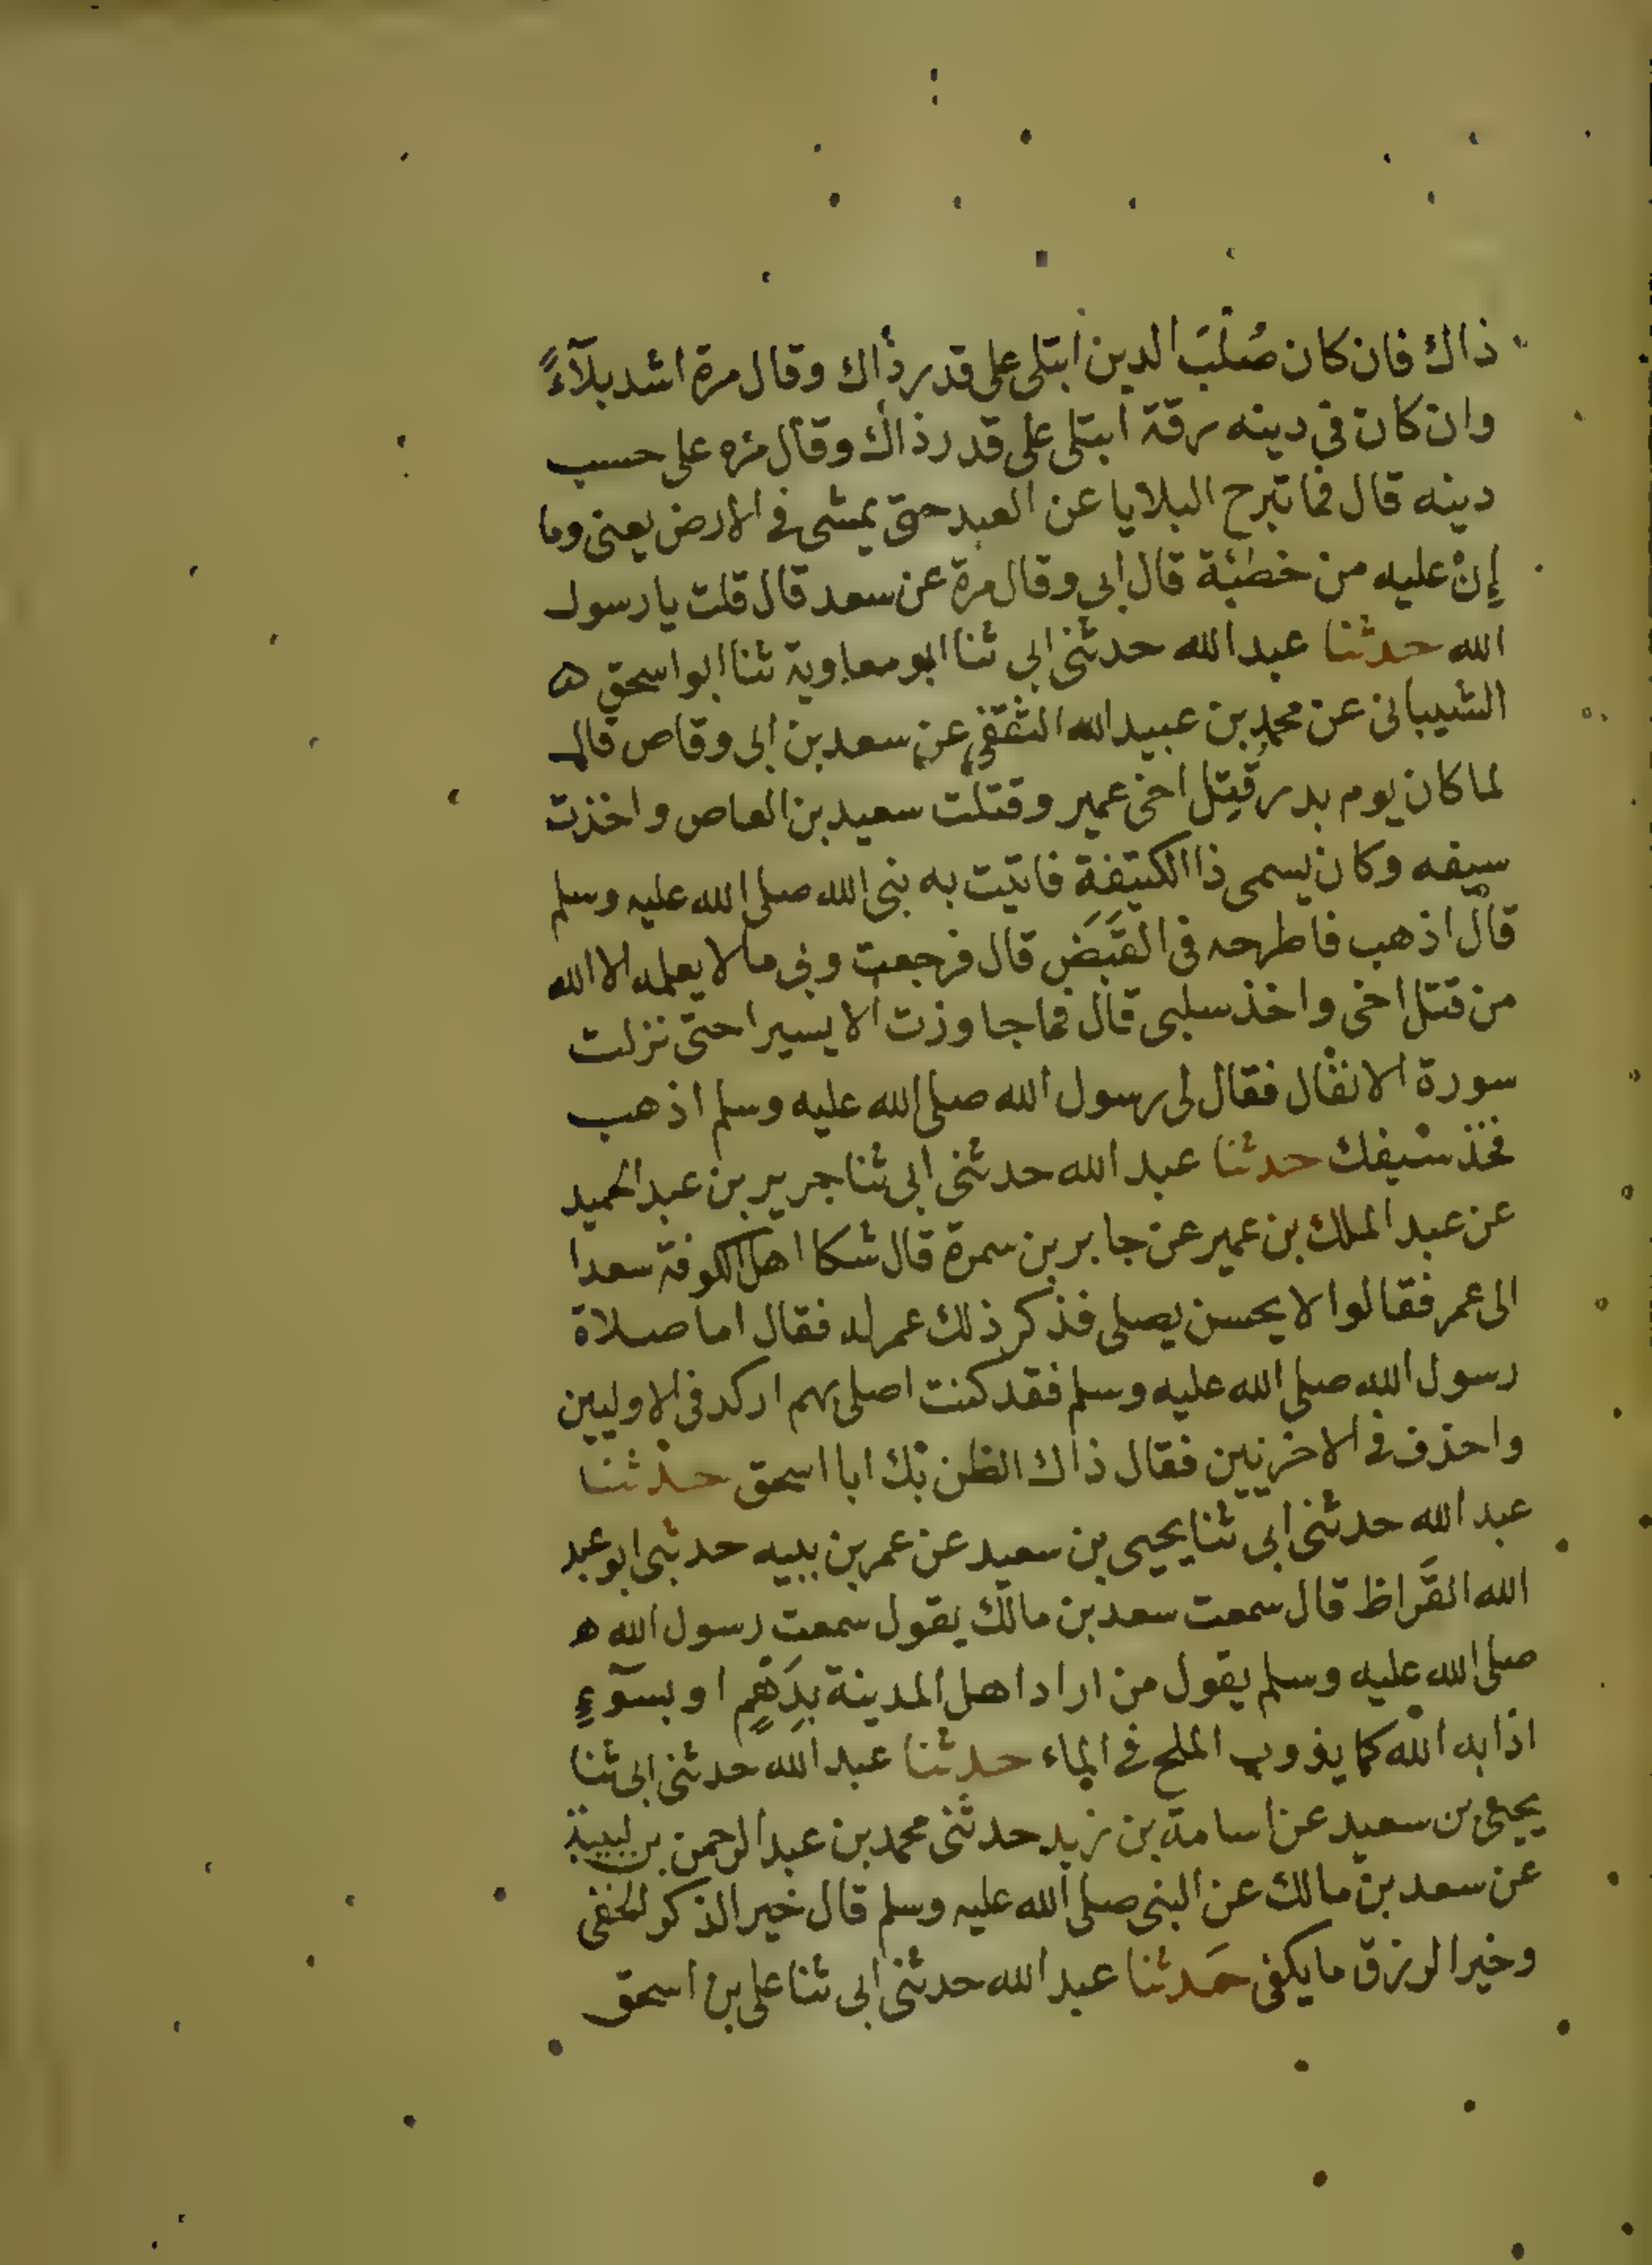 ذاك فان كان صُلبَ الدين ابتلى على قدر ذاك وقال مرة اشد بلآءً
وان كان في دينه رقة ابتلى على قدر ذاك وقال مره على حسب
دينه قال فما تبرح البلايا عن العبد حتى يمشى في الارض يعنى وما
إنْ عليه من خطئة قال ابي وقال مرة عن سعد قال قلت يا رسول
الله حدثنا عبد الله حدثنى ابى ثنا ابو معاوية ثنا ابو اسحق ه
الشيبانى عن محمد بن عبيد الله الثقفى عن سعد بن ابى وقاص قال
لما كان يوم بدر قُتِل اخى عمير وقتلت سعيد بن العاص واخذت
سيفه وكان يسمى ذا الكتيفة فاتيت به نبى الله صلى الله عليه وسلم
قال اذهب فاطرحه فى القَبَضِ قال فرجعت وبى ما لا يعلمه الا الله
من قتل اخى واخذ سلبى قال فما جاوزت الا يسيرا حتى نزلت
سورة الانفال فقال لى رسول الله صلى الله عليه وسلم اذهب
فخذ سيفك حدثنا عبد الله حدثنى ابى ثنا جرير بن عبد الحميد
عن عبد الملك بن عمير عن جابر بن سمرة قال شكا اهل الكوفة سعدا
الى عمر فقالوا لا يحسن يصلى فذكر ذلك عمر له فقال اما صلاة
رسول الله صلى الله عليه وسلم فقد كنت اصلى بهم اركد فى الاوليين
واحذف فى الاخريين فقال ذاك الظن بك ابا اسحق حدثنا
عبد الله حدثنى ابى ثنا يحيى بن سعيد عن عمر بن ببيه حدثنى ابو عبد
الله القَّراظ قال سمعت سعد بن مالك يقول سمعت رسول الله ه
صلى الله عليه وسلم يقول من اراد اهل المدينة بِدَهْمٍ او بسوٓءٍ
اذابه الله كما يذوب الملح فى الماء حدثنا عبد الله حدثنى ابى ثنا
يحيى بن سعيد عن اسامة بن زيد حدثنى محمد بن عبد الرحمن بن لبيبة
عن سعد بن مالك عن النبى صلى الله عليه وسلم قال خير الذكر الخفى
وخير الرزق ما يكفى حَدثنا عبد الله حدثنى ابى ثنا على بن اسحق